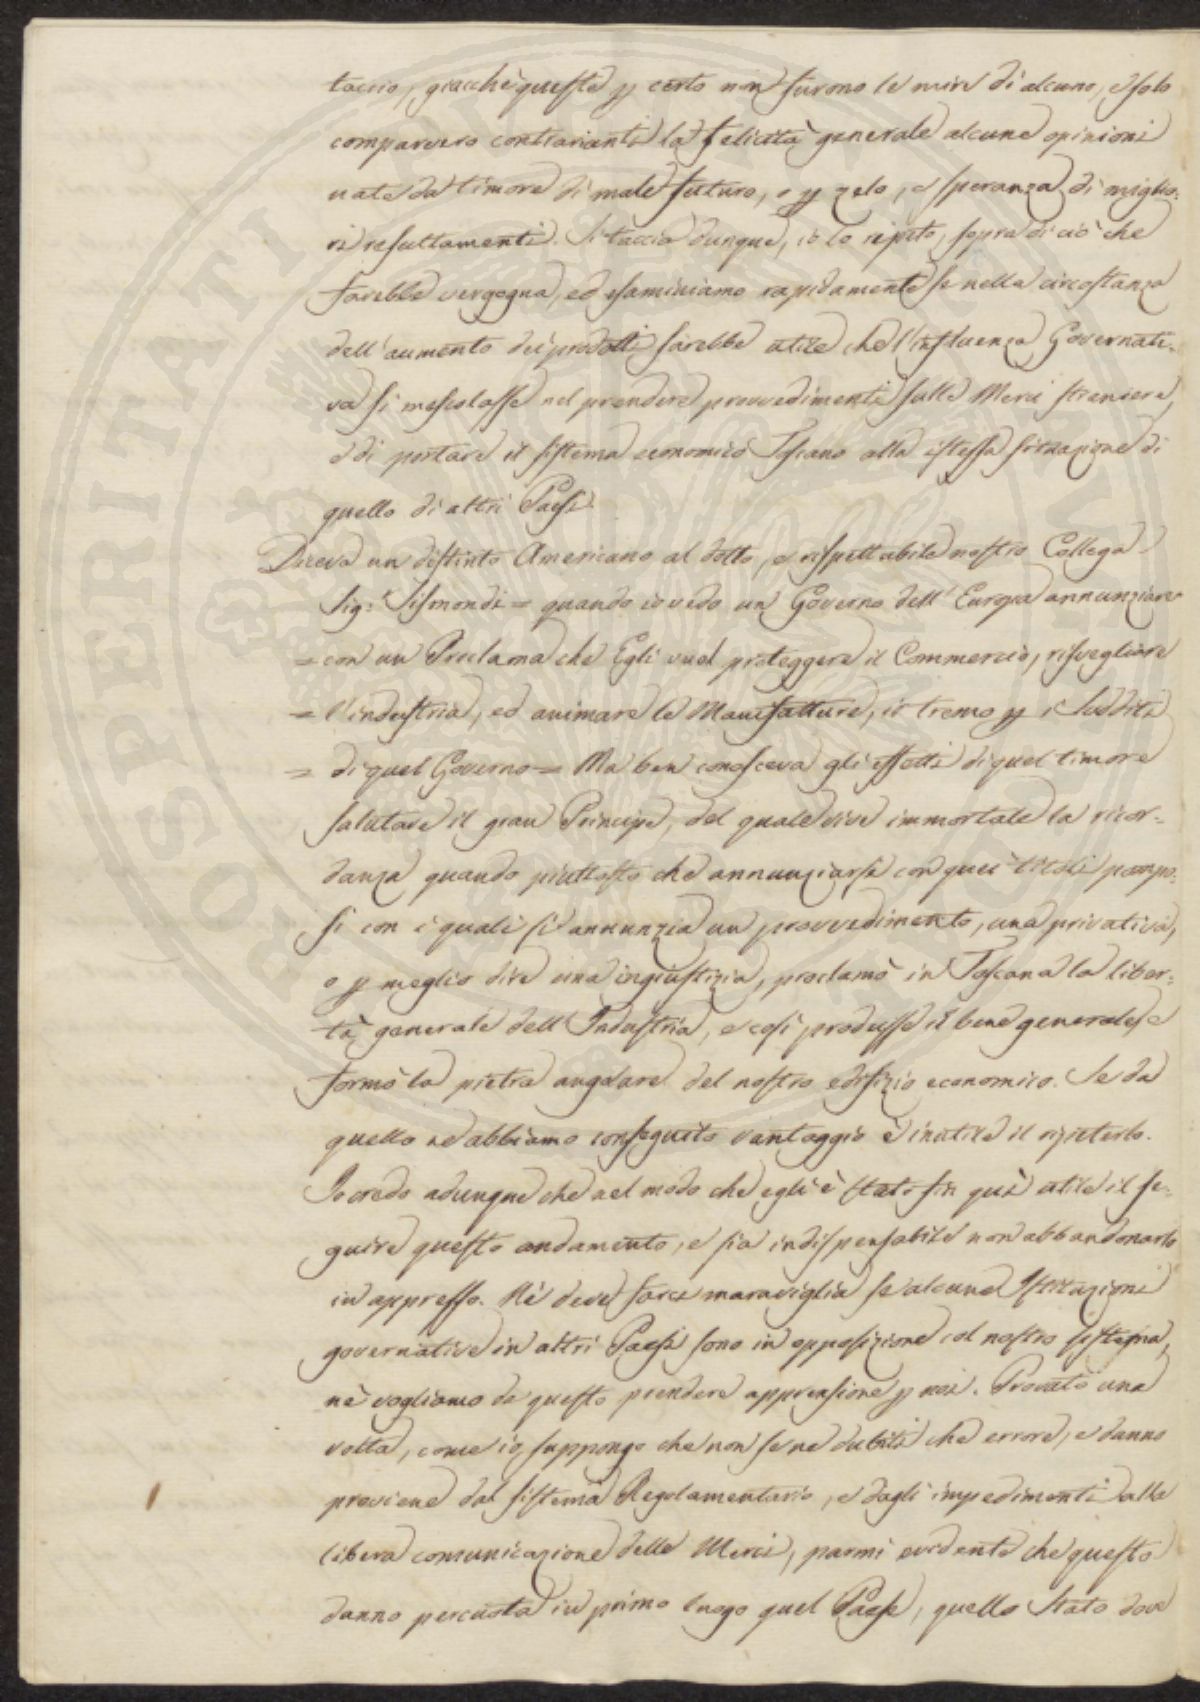 taccio, giacchè queste p certo non furono le mire di alcuno, e solo
comparvero contrarianti la felicità generale alcune opinioni
nate da timore di male futuro, o p zelo, e speranza di miglio=
ri resultamenti. Si taccia dunque, io lo ripeto, sopra di ciò che
farebbe vergogna, ed esaminiamo rapidamente se nella circostanza
dell'aumento dei prodotti sarebbe utile che l'influenza Governati=
va si mescolasse nel prendere provvedimenti sulle Merci straniere,
e di portare il sistema economico Toscano alla istessa situazione di
quello di altri Paesi.
Diceva un distinto Americano al dotto, e rispettabile nostro Collega
Sig:r Sismondi = quando io vedo un Governo dell'Europa annunziare
= con un Proclama che Egli vuol proteggere il Commercio, risvegliare
= l'industria, ed animare le Manifatture, io tremo p i Sudditi
= di quel Governo = Ma ben conosceva gli effetti di quel timore
salutare il gran Principe, del quale vive immortale la ricor=
danza quando piuttosto che annunziarsi con quei titoli pompo=
si con i quali si annunzia un provvedimento, una privativa,
o p meglio dire una ingiustizia, proclamò in Toscana la liber=
tà generale dell'Industria, e così produsse il bene generale, e
formò la pietra angolare del nostro edifizio economico. Se da
quello ne abbiamo conseguito vantaggio è inutile il ripeterlo.
Io credo adunque che nel modo che egli è stato fin qui utile il se=
guire questo andamento, e sia indispensabile non abbandonarlo
in appresso. Nè deve farci maraviglia se alcune Istituzioni
governative in altri Paesi sono in opposizione col nostro sistema,
nè vogliamo da questo prendere apprensione p noi. Provato una
volta, come io suppongo che non se ne dubiti che errore, e danno
proviene dal sistema Regolamentario, e dagli impedimenti alla
libera comunicazione delle Merci, parmi evidente che questo
danno percuota in primo luogo quel Paese, quello Stato dove
ROSPERITATI